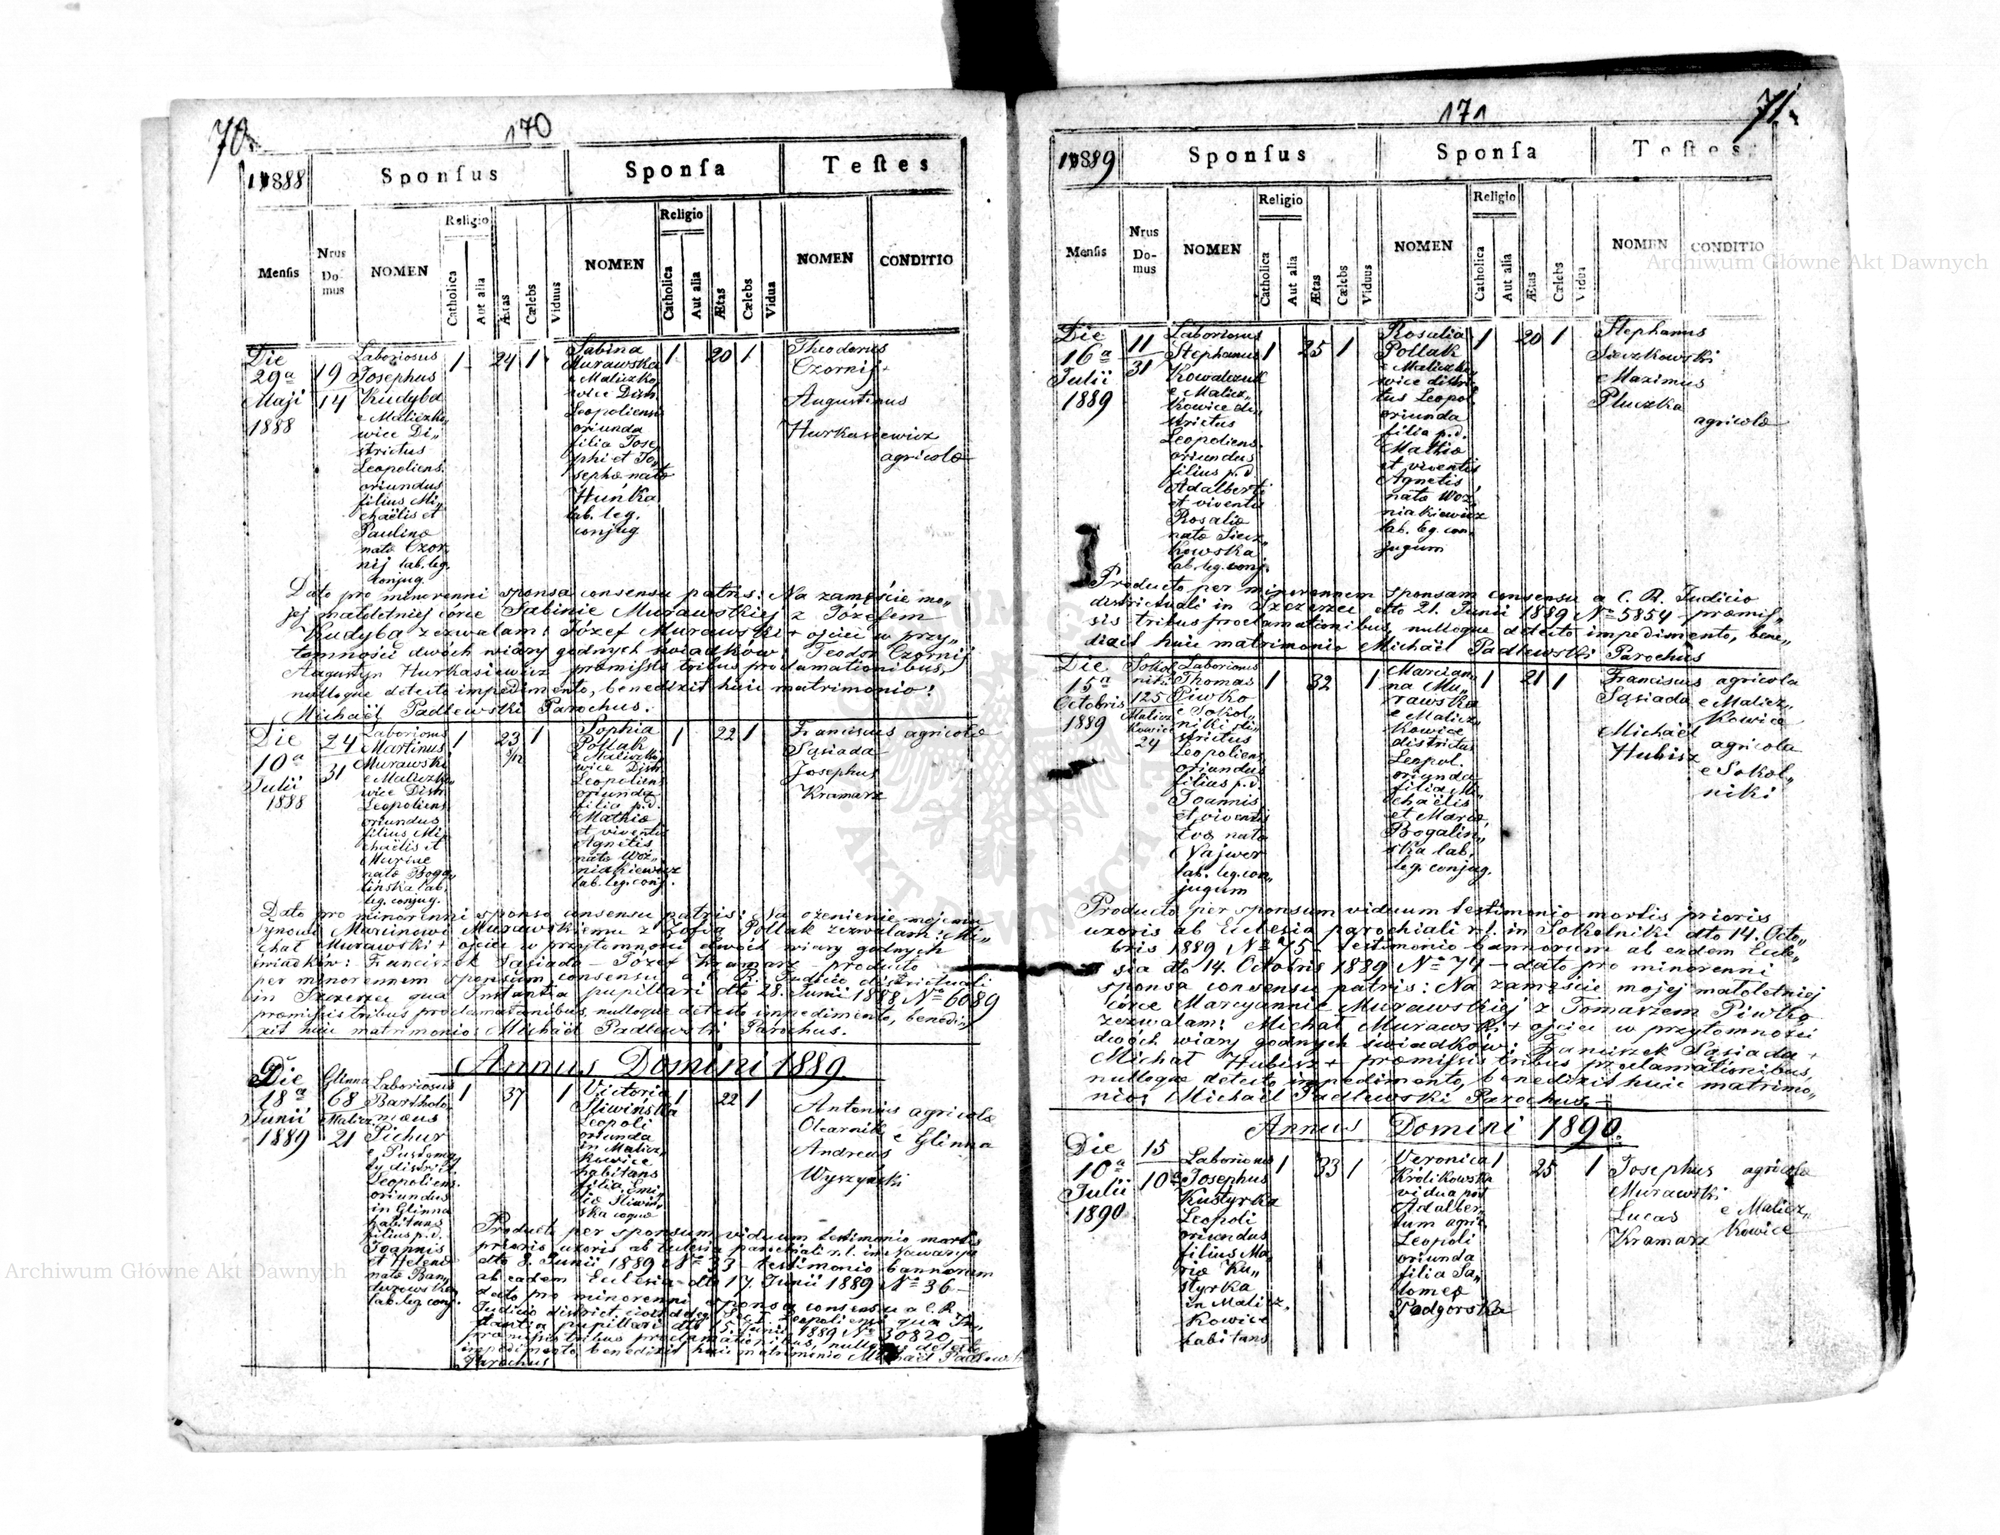 70.
170
1888
Sponsus
Sponsa
Testes
Mensis
Nrus Domus
NOMEN
Religio
Catholica
Aut alia
Ætas
Cælebs
Viduus
NOMEN
Religio
Catholica
Aut alia
Ætas
Cælebs
Vidua
NOMEN
CONDITIO
Die
29a
Maji
1888
19
14
Laboriosus
Josephus
Kudyba
e Maliczko„
wice Di„
strictus
Leopoliens.
oriundus
filius Mi„
chaëlis et
Paulinæ
natæ Czor„
nij lab. leg.
conjug.
1
24
1
Sabina
Murawska
e Maliczko„
wice Distr.
Leopoliens.
oriunda
filia Jose„
phi et Jo„
sephæ natæ
Huńka
lab. leg.
conjug.
1
20
1
Theodorus
Czornij +
Augustinus
Hurkasiewicz
agricolæ
Dato pro minorenni sponsa consensu patris: Na zamęście mo„
jej małoletniej córce Sabinie Murawskiej z Józefem
Kudybą zezwalam: Józef Murawski + ojciec w przy„
tomności dwóch wiary godnych świadków: Teodor Czornij
Augustyn Hurkasiewicz præmissis tribus proclamationibus,
nulloque detecto impedimento, benedixit huic matrimonio:
Michaël Padlewski Parochus.
Die
10a
Julii
1888
24
31
Laboriosus
Martinus
Murawski
e Maliczko„
wice Distr.
Leopoliens.
oriundus
filius Mi„
chaëlis et
Mariæ
natæ Boga„
lińska lab.
leg. conjug.
1
23
1
Sophia
Pollak
e Maliczko„
wice Distr.
Leopoliens.
oriunda
filia p.d.
Mathiæ
et viventis
Agnetis
natæ Woź„
niakiewicz
lab. leg. conj.
1
22
1
Franciscus agricolæ
Sąsiada
Josephus
Kramarz
Dato pro minorenni sponso consensu patris: Na ożenienie mojemu
synowi Marcinowi Murawskiemu z Zofią Pollak zezwalam: Mi„
chał Murawski + ojciec w przytomności dwóch wiary godnych
świadków: Franciszek Sąsiada – Józef Kramarz – producto
per minorennem sponsam consensu a C. R. Judicio districtuali
in Szczerzec qua Instantia pupillari dto 28. Junii 1888 No 6089
præmissis tribus proclamationibus, nulloque detecto impedimento, benedi„
xit huic matrimonio: Michaël Padlewski Parochus.
Annus Domini 1889.
Die
18a
Junii
1889
Glinna
68
Malicz.
21
Laboriosus
Bartholo„
mæus
Pichur
e Pustomy„
ty district.
Leopoliens.
oriundus
in Glinna
habitans
filius p.d.
Joannis
et Helenæ
natæ Ban„
durowska
lab. leg. conj.
1
37
1
Victoria
Sliwińska
Leopoli
oriunda
in Malicz„
kowice
habitans
filia Emi„
liæ Sliwiń„
ska coquæ
1
22
1
Antonius agricolæ
Olearnik e Glinna
Andreas
Wyszyński
Producto per sponsum viduum testimonio mortis
prioris uxoris ab Ecclesia parochiali r.l. in Nawarya
dto 8. Junii 1889 No 33 – testimonio bannorum
ab eadem Ecclesia dto 17. Junii 1889 No 36 –
dato pro minorenni sponsa consensu a C. R.
Leopoliensi qua In„
stantia pupillari dto 15 Junii 1889 No 30820, –
præmissis tribus proclamationibus, nulloque detecto
impedimento benedixit huic matrimonio Michaël Padlewski
Parochus
171
71.
1889
Sponsus
Sponsa
Testes
Mensis
Nrus Domus
NOMEN
Religio
Catholica
Aut alia
Ætas
Cælebs
Viduus
NOMEN
Religio
Catholica
Aut alia
Ætas
Cælebs
Vidua
NOMEN
CONDITIO
Die
16a
Julii
1889
11
31
Laboriosus
Stephanus
Kowalczuk
e Malicz„
kowice di„
strictus
Leopoliens.
oriundus
filius p.d.
Adalberti
et viventis
Rosaliæ
natæ Siecz„
kowska
lab. leg. conj.
1
25
1
Rosalia
Pollak
e Maliczko„
wice distric„
tus Leopol.
oriunda
filia p.d.
Mathiæ
et viventis
Agnetis
natæ Woź„
niakiewicz
lab. leg. con„
jugum
1
20
1
Stephanus
Sieczkowski
Maximus
Pluczka
agricolæ
Producto per minorennem sponsam consensu a C. R. Judicio
districtuali in Szczerzec dto 21. Junii 1889 No 5854 – præmis„
sis tribus proclamationibus, nulloque detecto impedimento, bene„
dixit huic matrimonio Michaël Padlewski Parochus
Die
15a
Octobris
1889
Sokol„
niki
125
Malicz„
kowice
24
Laboriosus
Thomas
Piwko
e Sokol„
niki di„
strictus
Leopoliens.
oriundus
filius p.d.
Joannis
et viventis
Evæ natæ
Najwer
lab. leg. con„
jugum
1
32
1
Marcian„
na Mu„
rawska
e Malicz„
kowice
districtus
Leopol.
oriunda
filia Mi„
chaëlis
et Mariæ
Bogaliń„
ska lab.
leg. conjug.
1
21
1
Franciscus agricola
Sąsiada e Malicz„
kowice
Michaël agricola
Hubisz
e Sokol„
niki
Producto per sponsum viduum testimonio mortis prioris
uxoris ab Ecclesia parochiali r.l. in Sokolniki dto 14. Octo„
bris 1889 No 75 – testimonio bannorum ab eadem Eccle„
sia dto 14. Octobris 1889 No 74 – dato pro minorenni
sponsa consensu patris: Na zamęście mojej małoletniej
córce Marcyannie Murawskiej z Tomaszem Piwko
zezwalam: Michał Murawski + ojciec w przytomności
dwóch wiary godnych świadków: Franciszek Sąsiada +
Michał Hubisz + præmissis tribus proclamationibus,
nulloque detecto impedimento, benedixit huic matrimo„
nio: Michaël Padlewski Parochus. –
Annus Domini 1890.
Die
10a
Julii
1890
15
10a
Laboriosus
Josephus
Kustyrka
Leopoli
oriundus
filius Ma„
riæ Ku„
styrka
in Malicz„
kowice
habitans
1
33
1
Veronica
Królikowska
vidua post
Adalber„
tum agric.
Leopoli
oriunda
filia Sa„
lomeæ
Podgórska
1
25
1
Josephus agricolæ
Murawski
Lucas e Malicz„
Kramarz kowice
Archiwum Główne Akt Dawnych
Archiwum Główne Akt Dawnych